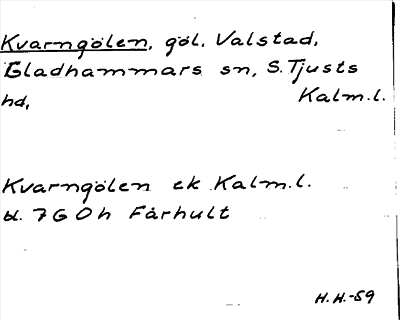 Kvarngölen, göl, Valstad,
Gladhammars sn, S. Tjusts
hd, Kalm.l.
Kvarngölen ek Kalm.l.
bl. 7G0h Fårhult
H.H.-59